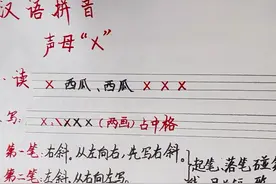 汉语拼音
声母"x"
·读 x 西瓜、西瓜 x x x
写: x、\ x x x (两画)占中格
第一笔:右斜。从左向右,先写右斜。
第二笔:左斜。从右向左写。
起笔、落笔